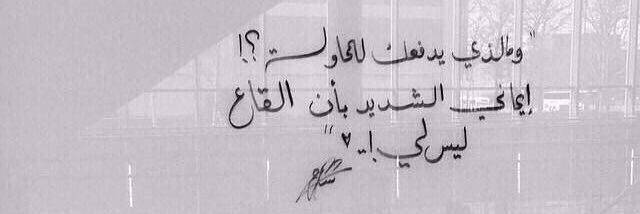 "ومالذي يدفعك للمحاولة ؟!
إيماني الشديد بأن القاع
ليس لي !.. ٧"